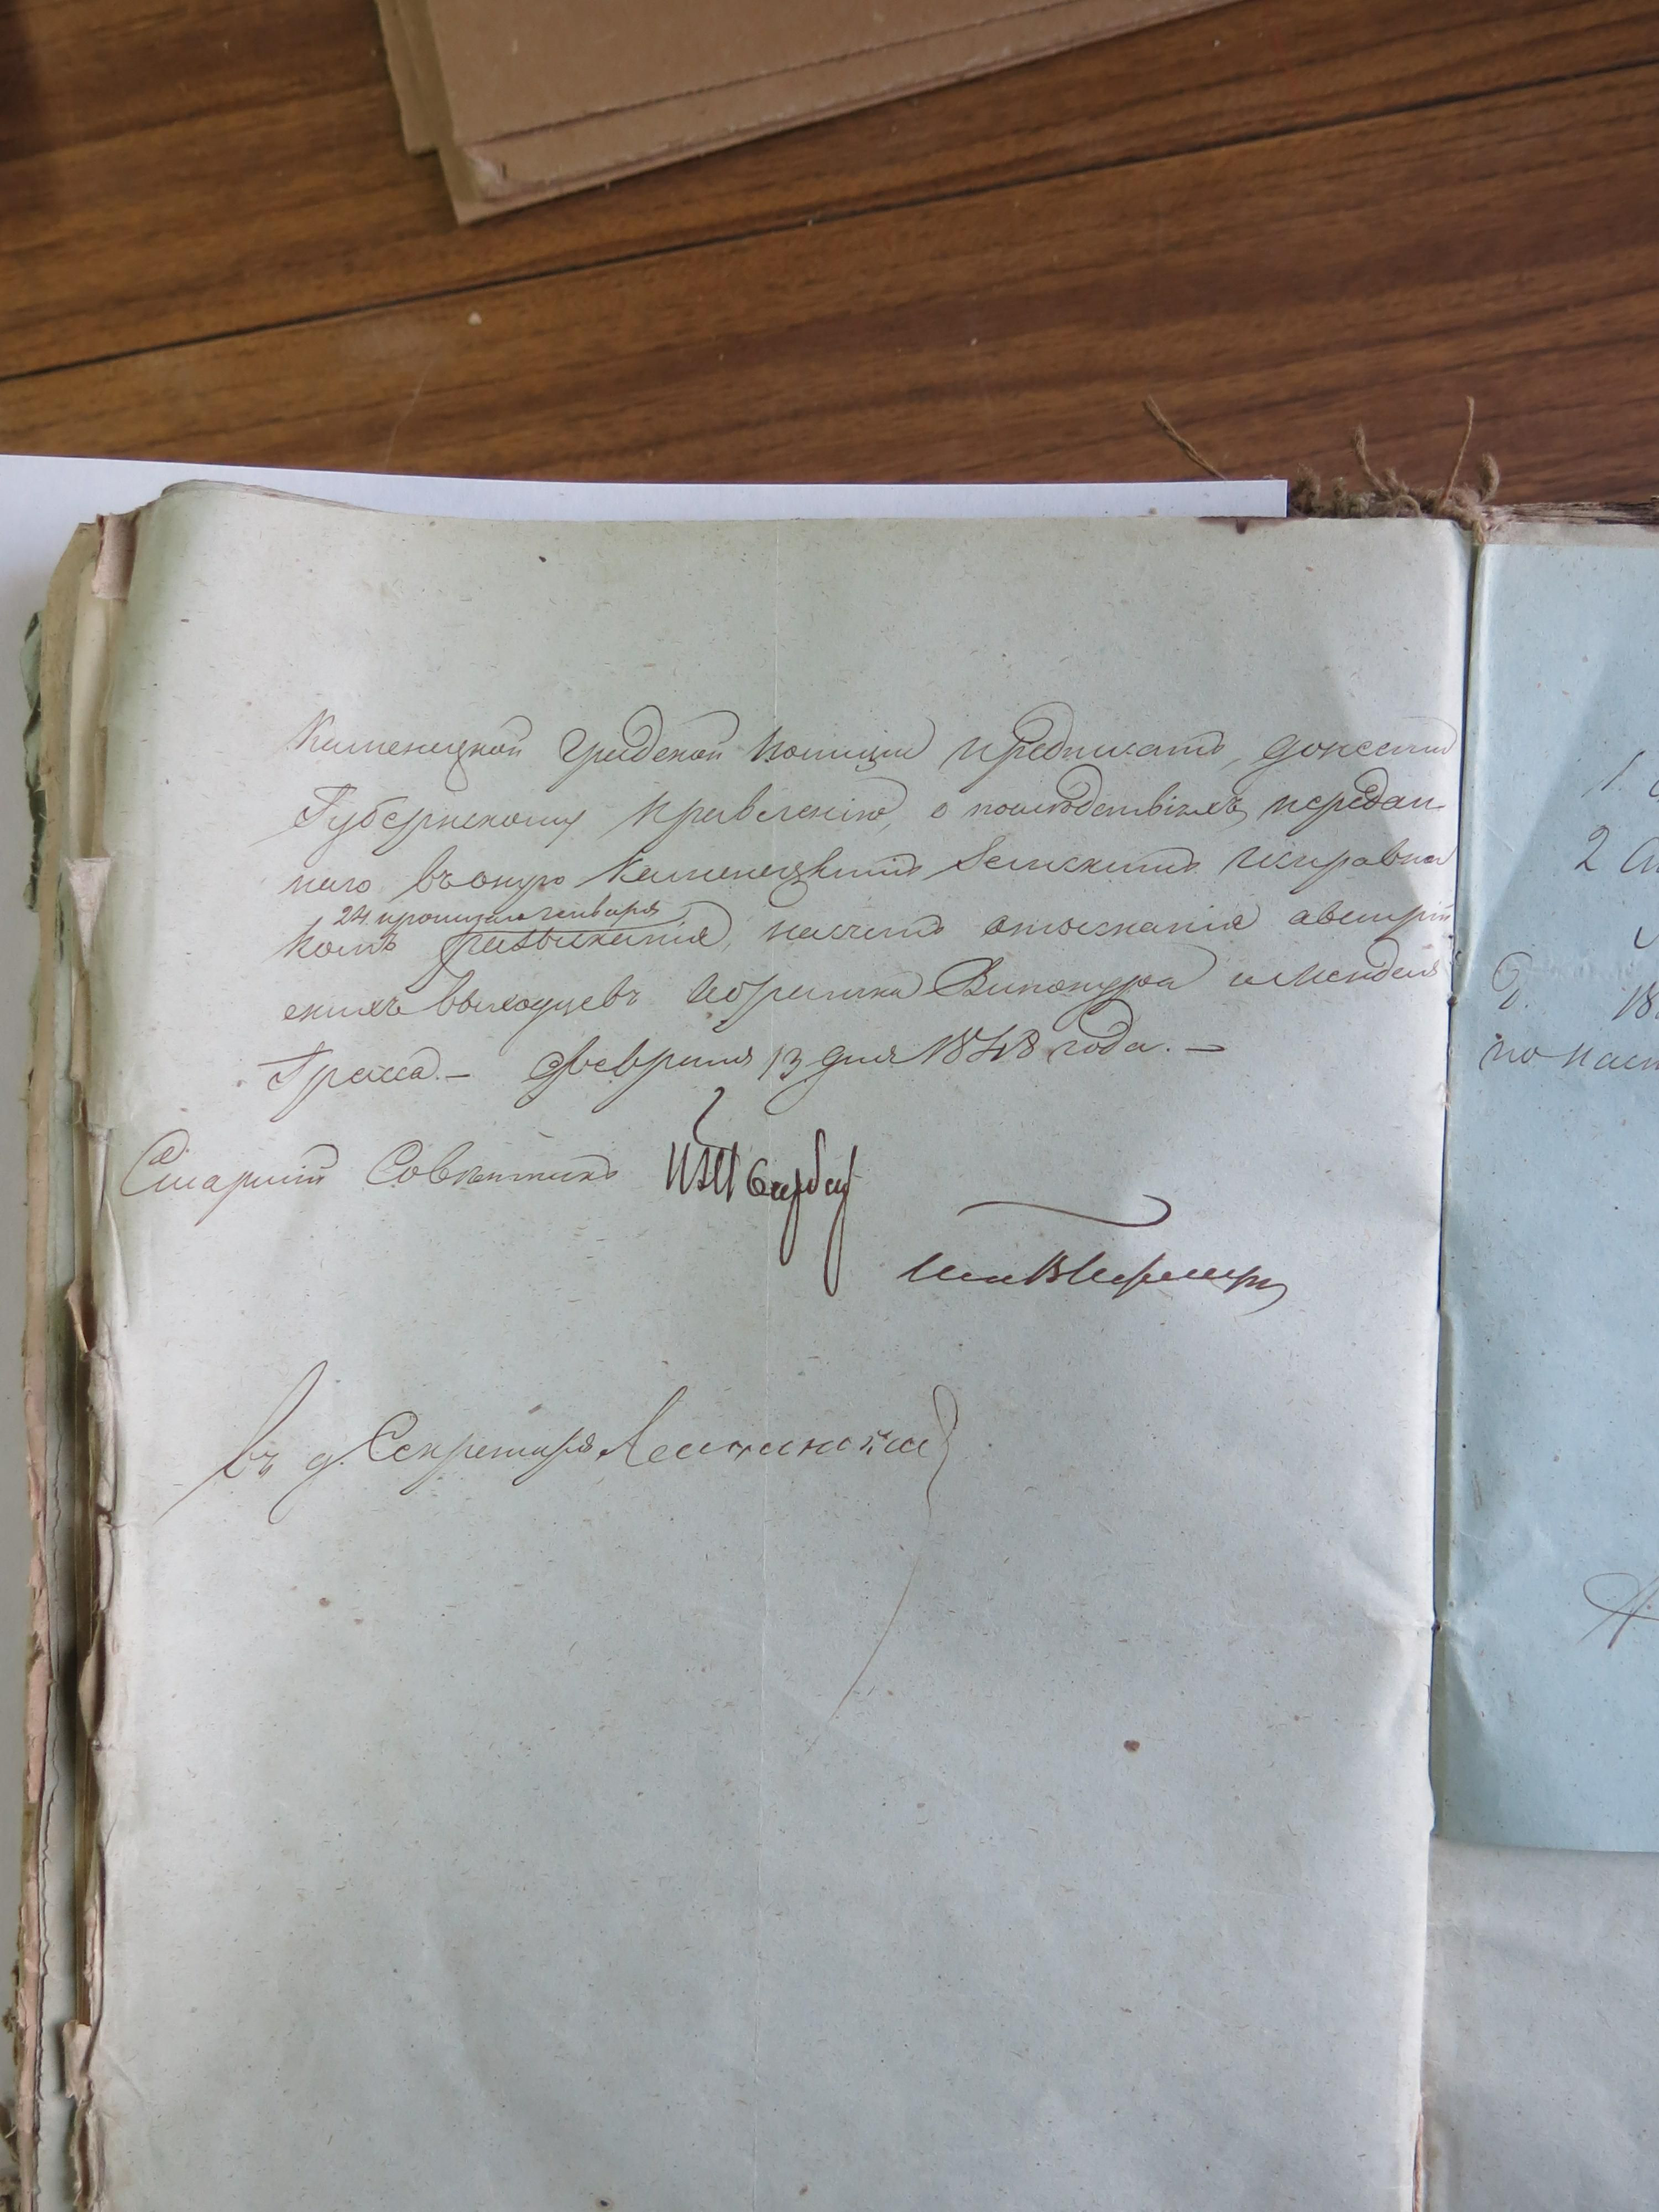 Каменецкой Градской Полиции предписать, донести
Губернскому Правлению, о последствіяхъ, передан-
наго въ оную Каменецкимъ Земскимъ Исправни
24. прошлаго Генваря
комъ розысканія, насчетъ отысканія австрій
скихъ выходцевъ Абрамка Винокура и Менделя
Гросса. – Февраля 13 дня 1848 года. –
Старшій Совѣтникъ
въ д. Секретаря
1.
2
18
по наст